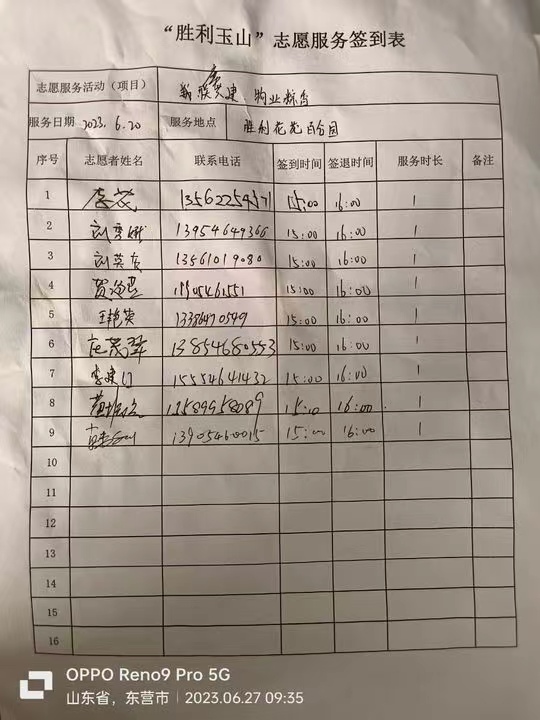 “胜利玉山”志愿服务签到表
志愿服务活动(项目) 共建、物业
服务日期 2023.6.20 服务地点 胜利花苑百合园
序号 志愿者姓名 联系电话 签到时间 签退时间 服务时长 备注
1 李茂 15:00 16:00 1
2 13954649366 15:00 16:00 1
3 刘英 13561019080 15:00 16:00 1
4 15:00 16:00 1
5 王艳英 15:00 16:00 1
6 13854680553 15:00 16:00 1
7 李建 15554641432 15:00 16:00 1
8 黄 16:00 1
9 13905460015 15:00 16:00 1
10
11
12
13
14
15
16
OPPO Reno9 Pro 5G
山东省，东营市 | 2023.06.27 09:35